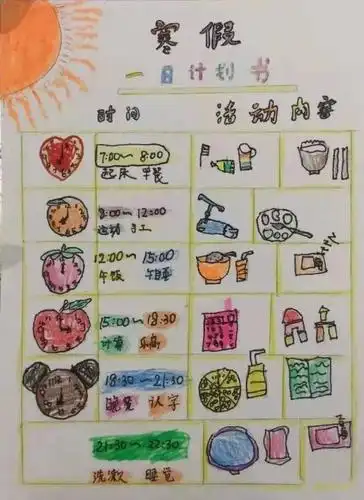 寒假
一日计划书
时间 活动内容
7:00~8:00
起床 早餐
8:00~12:00
运动 手工
12:00~15:00
午饭 午睡
15:00~18:30
计算 乐高
18:30~21:30
晚餐 认字
21:30~22:30
洗漱 睡觉